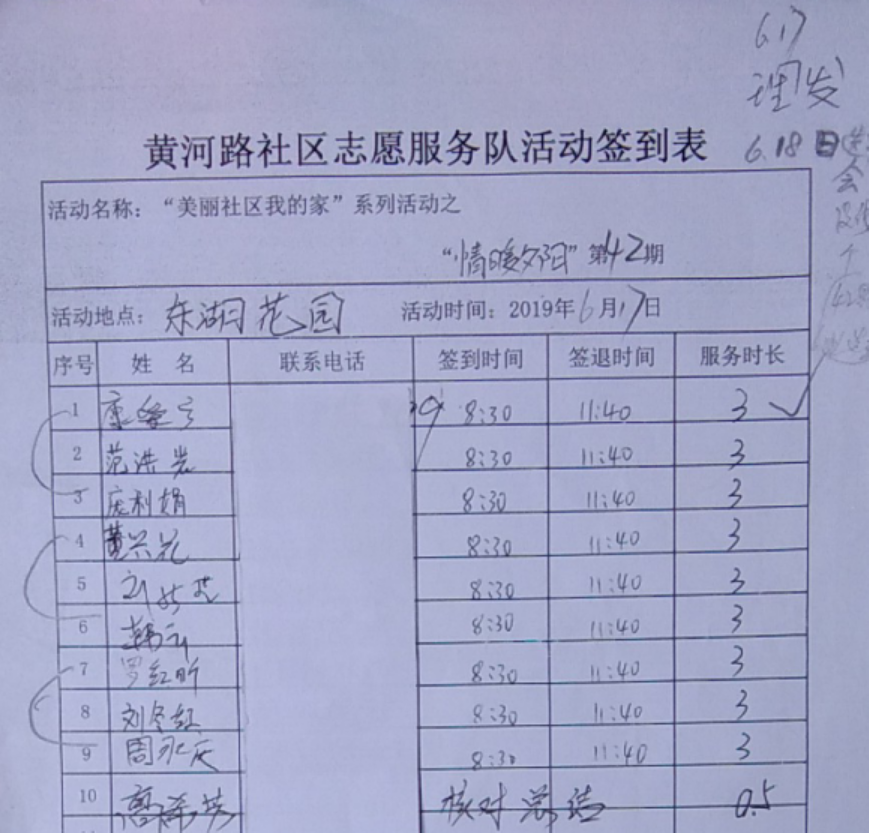 6.17
理发
黄河路社区志愿服务队活动签到表
6.18日
会
活动名称：“美丽社区我的家”系列活动之
“情暖夕阳”第42期
活动地点：东湖花园 活动时间：2019年6月17日
序号 姓 名 联系电话 签到时间 签退时间 服务时长
1 8:30 11:40 3
2 范洪岩 8:30 11:40 3
3 庞利娟 8:30 11:40 3
4 黄兴花 8:30 11:40 3
5 8:30 11:40 3
6 韩云 8:30 11:40 3
7 罗红昕 8:30 11:40 3
8 刘冬红 8:30 11:40 3
9 周永庆 8:30 11:40 3
10 核对总结 0.5